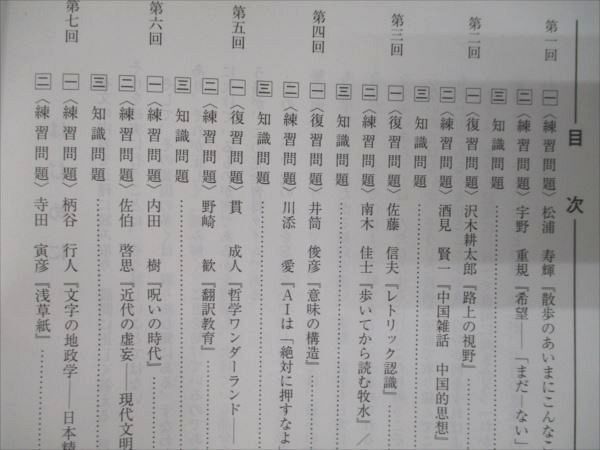 目次
第一回
一〈練習問題〉松浦 寿輝『散歩のあいまにこんなこ
二〈練習問題〉宇野 重規『希望――「まだ―ない」
三 知識問題…………
第二回
一〈復習問題〉沢木耕太郎『路上の視野』…………
二〈練習問題〉酒見 賢一『中国雑話 中国的思想』
三 知識問題…………
第三回
一〈復習問題〉佐藤 信夫『レトリック認識』…………
二〈練習問題〉南木 佳士『歩いてから読む牧水』/
三 知識問題…………
第四回
一〈復習問題〉井筒 俊彦『意味の構造』…………
二〈練習問題〉川添 愛『AIは「絶対に押すなよ
三 知識問題…………
第五回
一〈復習問題〉貫 成人『哲学ワンダーランド――
二〈練習問題〉野崎 歓『翻訳教育』…………
三 知識問題…………
第六回
一〈練習問題〉内田 樹『呪いの時代』…………
二〈練習問題〉佐伯 啓思『近代の虚妄――現代文明
三 知識問題…………
第七回
一〈練習問題〉柄谷 行人『文字の地政学――日本精
二〈練習問題〉寺田 寅彦『浅草紙』…………